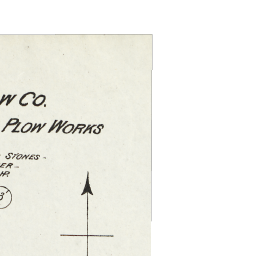 W CO.
PLOW WORKS
STONES -
ER -
HP.
3'